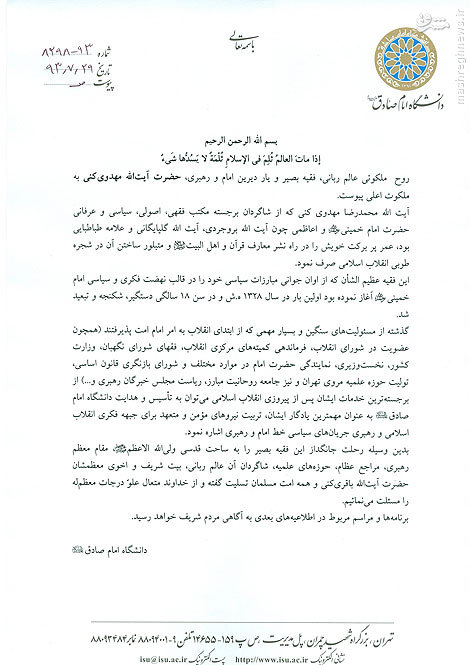 باسمه تعالی
شماره ۹۳-۸۲۹۸
تاریخ ۹۳,۷,۲۹
پیوست
دانشگاه امام صادق
بسم الله الرحمن الرحیم
إذا ماتَ العالمُ ثُلِمَ فی الإسلامِ ثُلْمَةٌ لا یَسُدُّها شَیءٌ
روح ملکوتی عالم ربانی، فقیه بصیر و یار دیرین امام و رهبری، حضرت آیت‌الله مهدوی‌کنی به
ملکوت اعلی پیوست.
آیت الله محمدرضا مهدوی کنی که از شاگردان برجسته مکتب فقهی، اصولی، سیاسی و عرفانی
حضرت امام خمینی و اعاظمی چون آیت الله بروجردی، آیت الله گلپایگانی و علامه طباطبایی
بود، عمر پر برکت خویش را در راه نشر معارف قرآن و اهل البیت و متبلور ساختن آن در شجره
طوبی انقلاب اسلامی صرف نمود.
این فقیه عظیم الشأن که از اوان جوانی مبارزات سیاسی خود را در قالب نهضت فکری و سیاسی امام
خمینی آغاز نموده بود اولین بار در سال ۱۳۲۸ ه.ش و در سن ۱۸ سالگی دستگیر، شکنجه و تبعید
شد.
گذشته از مسئولیت‌های سنگین و بسیار مهمی که از ابتدای انقلاب به امر امام امت پذیرفتند (همچون
عضویت در شورای انقلاب، فرماندهی کمیته‌های مرکزی انقلاب، فقهای شورای نگهبان، وزارت
کشور، نخست‌وزیری، نمایندگی حضرت امام در موارد مختلف و شورای بازنگری قانون اساسی،
تولیت حوزه علمیه مروی تهران و نیز جامعه روحانیت مبارز، ریاست مجلس خبرگان رهبری و...) از
برجسته‌ترین خدمات ایشان پس از پیروزی انقلاب اسلامی می‌توان به تأسیس و هدایت دانشگاه امام
صادق به عنوان مهمترین یادگار ایشان، تربیت نیروهای مؤمن و متعهد برای جبهه فکری انقلاب
اسلامی و رهبری جریان‌های سیاسی خط امام و رهبری اشاره نمود.
بدین وسیله رحلت جانگداز این فقیه بصیر را به ساحت قدسی ولی‌الله الاعظم، مقام معظم
رهبری، مراجع عظام، حوزه‌های علمیه، شاگردان آن عالم ربانی، بیت شریف و اخوی معظمشان
حضرت آیت‌الله باقری‌کنی و همه امت مسلمان تسلیت گفته و از خداوند متعال علوّ درجات معظم‌له
را مسئلت می‌نمائیم.
برنامه‌ها و مراسم مربوط در اطلاعیه‌های بعدی به آگاهی مردم شریف خواهد رسید.
دانشگاه امام صادق
تهران، بزرگراه شهید چمران، پل مدیریت، ص پ ۱۵۹-۱۴۶۵۵ تلفن ۹-۸۸۰۹۴۰۰۱ نمابر ۸۸۰۹۳۴۸۴
نشانی الکترونیک http://www.isu.ac.ir پست الکترونیک isu@isu.ac.ir
مشرق
mashreghnews.ir